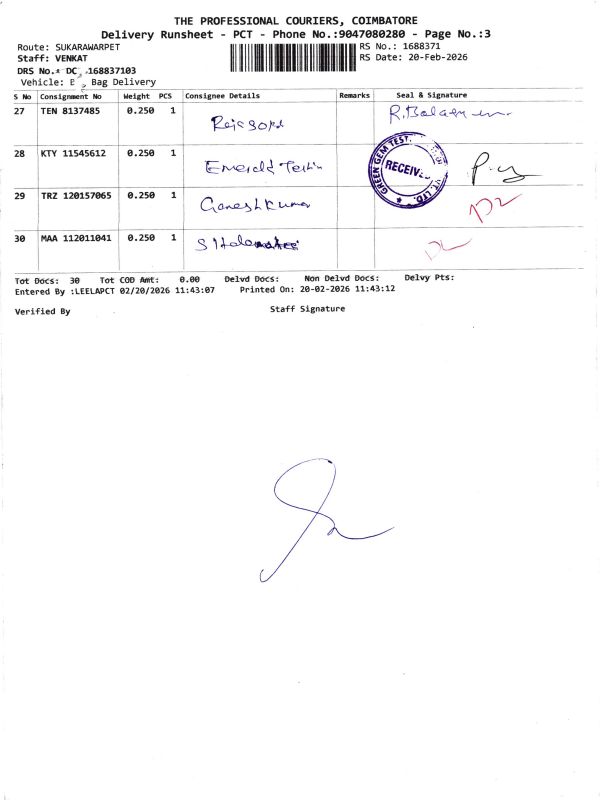 THE PROFESSIONAL COURIERS, COIMBATORE
Delivery Runsheet - PCT - Phone No.:9047080280 - Page No.:3
Route: SUKARAWARPET
RS No.: 1688371
Staff: VENKAT
RS Date: 20-Feb-2026
DRS No.: DC 168837103
Vehicle: Bag Delivery
S No Consignment No Weight PCS Consignee Details Remarks Seal & Signature
27 TEN 8137485 0.250 1 R. Bala
28 KTY 11545612 0.250 1 Emerald GREEN GEM TEST. PVT. LTD. RECEIVED
29 TRZ 120157065 0.250 1 Ganesh Kumar
30 MAA 112011041 0.250 1
Tot Docs: 30 Tot COD Amt: 0.00 Delvd Docs: Non Delvd Docs: Delvy Pts:
Entered By :LEELAPCT 02/20/2026 11:43:07 Printed On: 20-02-2026 11:43:12
Verified By Staff Signature